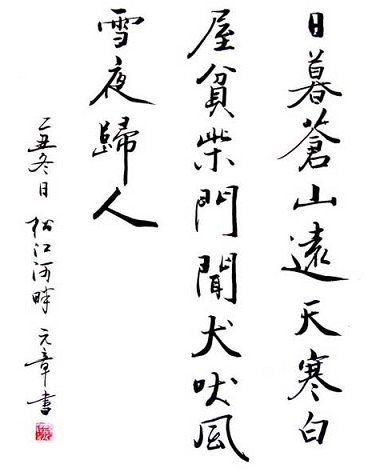 日暮蒼山遠天寒白
屋貧柴門聞犬吠風
雪夜歸人
乙丑冬日 松江河畔 元章書